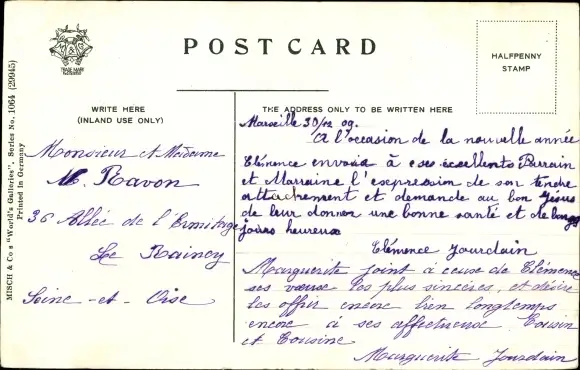 POST CARD
M & Co
TRADE MARK
HALFPENNY
STAMP
WRITE HERE
(INLAND USE ONLY)
THE ADDRESS ONLY TO BE WRITTEN HERE
MISCH & Co's "World's Galleries". Series No. 1064 (29945)
Printed in Germany
Monsieur et Madame
Ravon
36 Allée de l'Ermitage
Le Raincy
Seine - et - Oise
Marseille 30/12 09.
A l'occasion de la nouvelle année
Clémence envoie à ses excellents Parrain
et Marraine l'expression de son tendre
attachement et demande au bon Jésus
de leur donner une bonne santé et de longs
jours heureux
Clémence Jourdain
Marguerite joint à ceux de Clémence
ses vœux les plus sincères, et désire
les offrir encore bien longtemps
encore à ses affectueux Cousin
et Cousine
Marguerite Jourdain